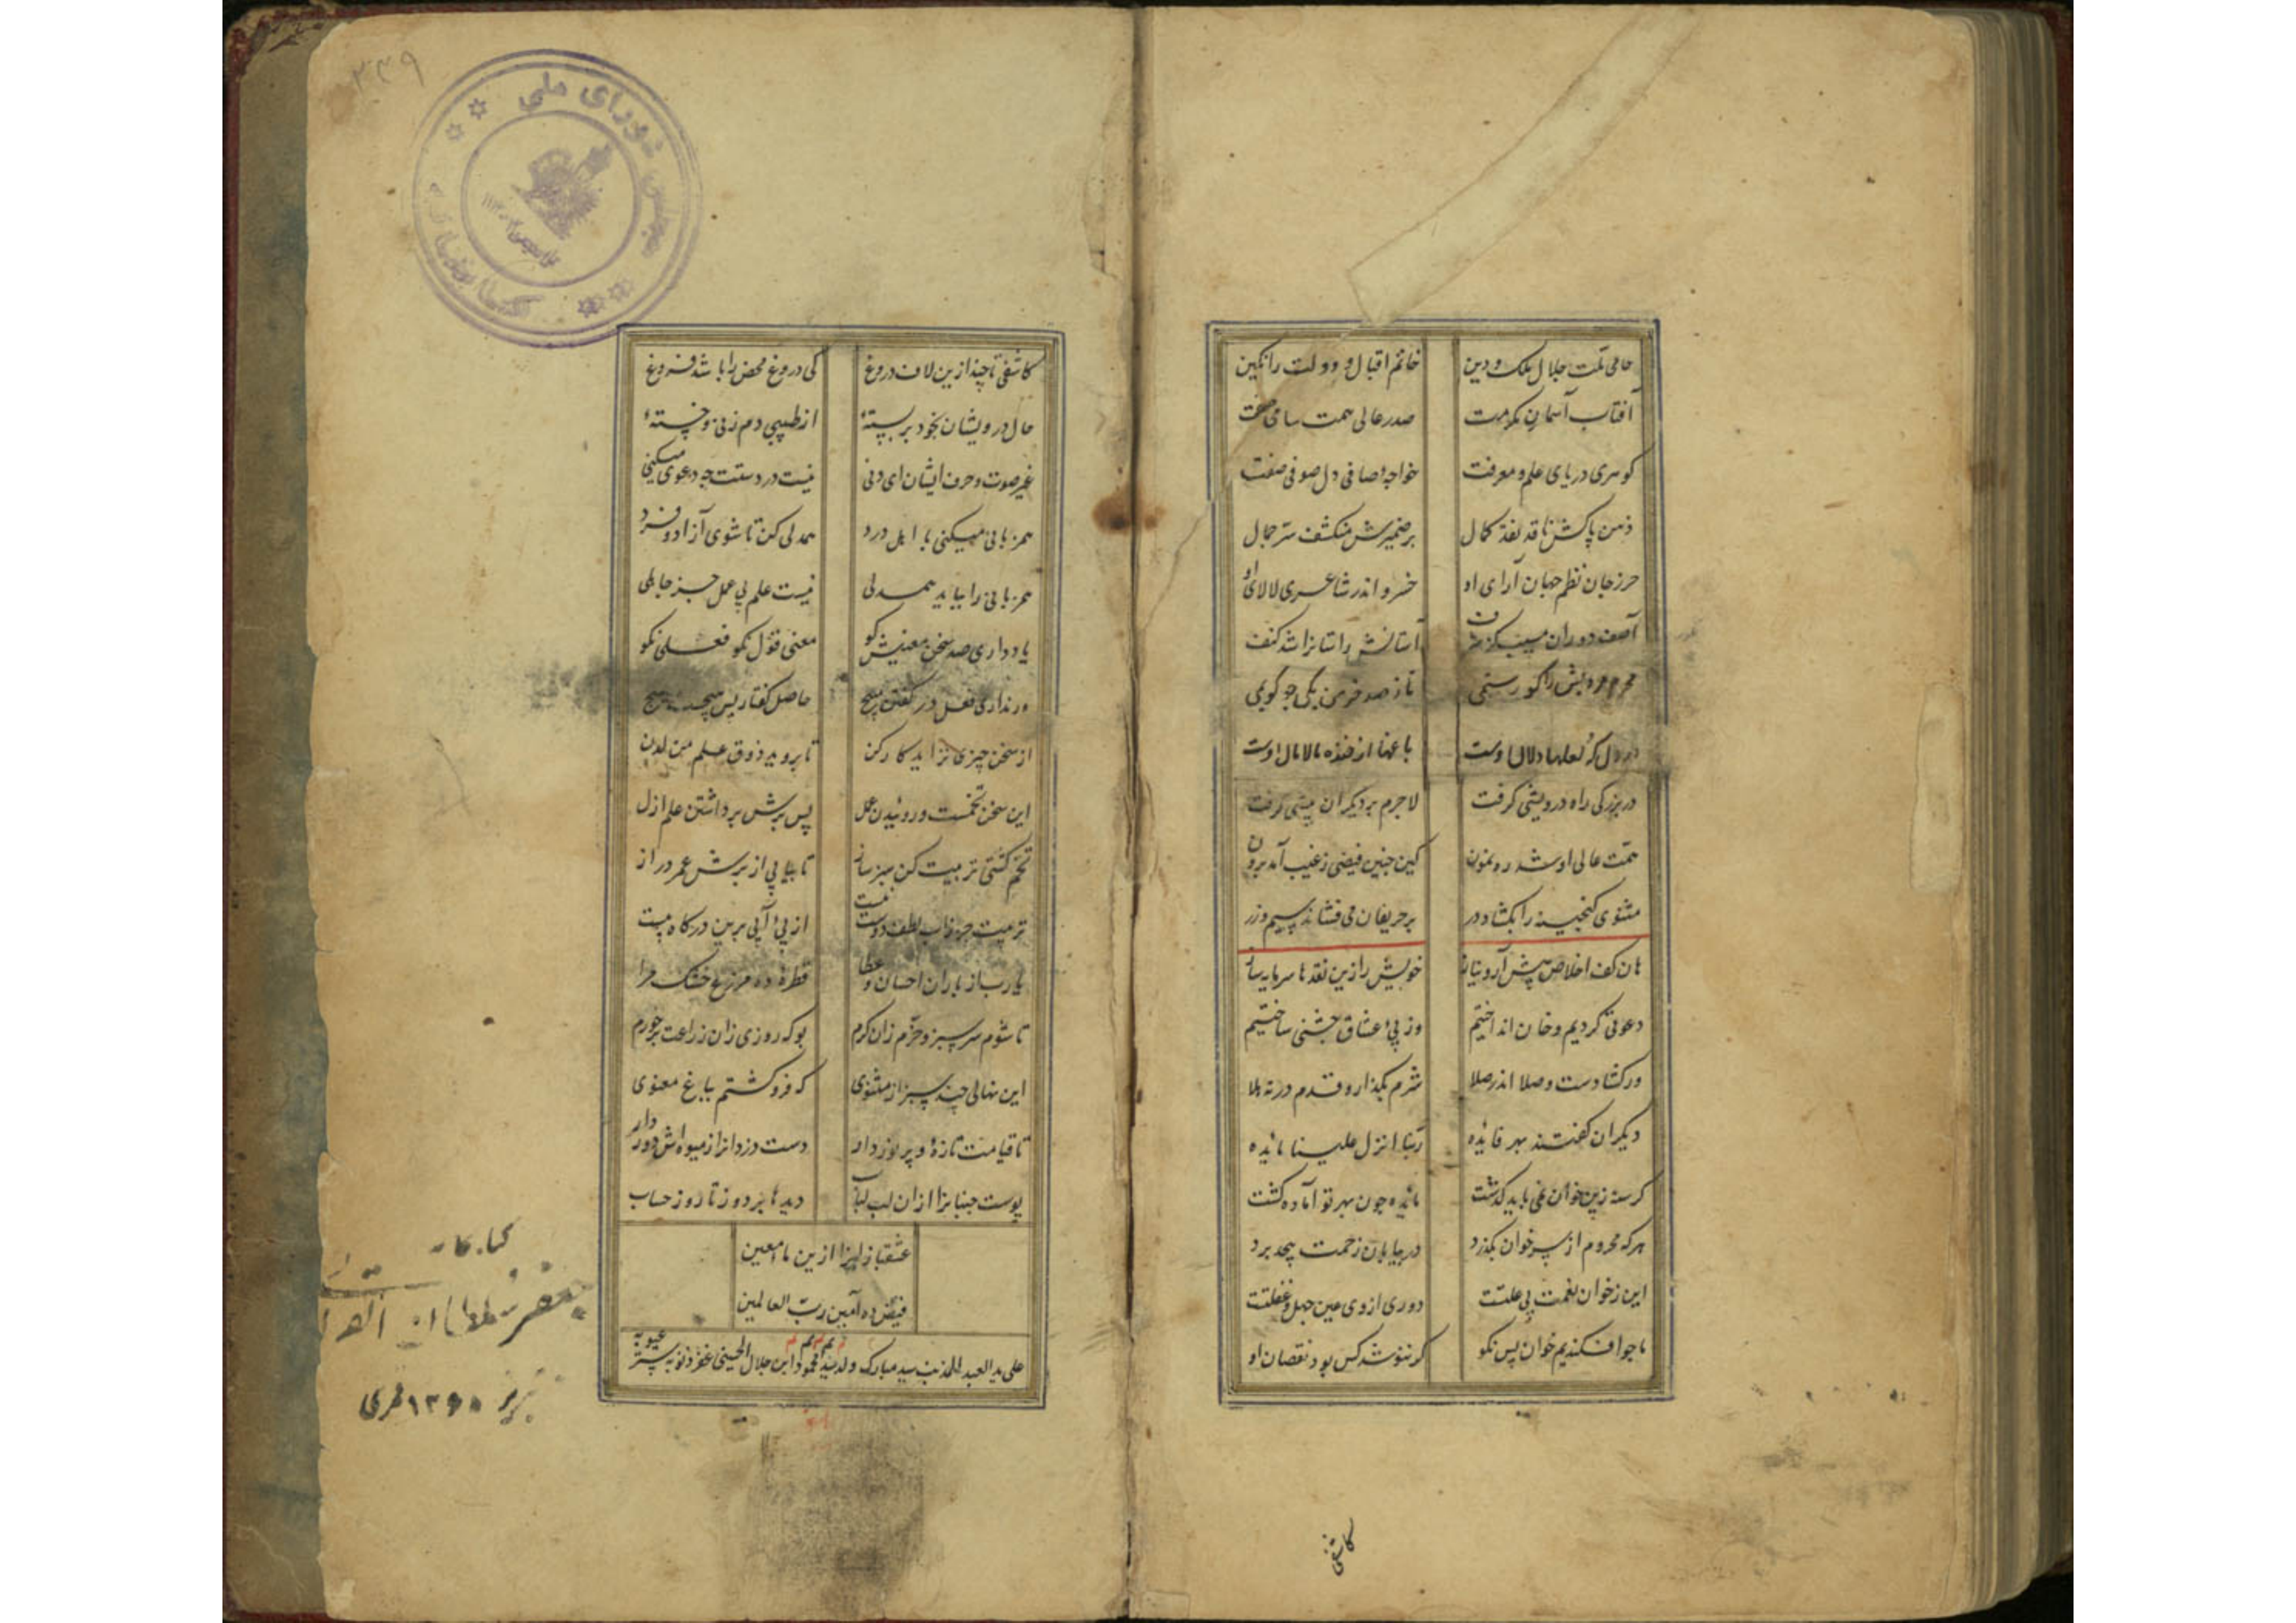 حامی ملت جلال ملک و دین خاتم اقبال و دولت را نکین
آفتاب آسمان مکرمت صدر عالی همت سامی صفت
کوهری دریای علم و معرفت خواجهٔ صافی دل صوفی صفت
ذهن پاکش ناقد نقد کمال بر ضمیرش منکشف سر جمال
حرز جان نظم جهان آرای او خسرو اندر شاعری لالای او
آصف دوران آستانش راستانرا شد کنف
تا ز صد خرمن یکی جو کویمی
باغها از خنده مالامال اوست
در بزرکی راه درویشی کرفت لاجرم بر دیکران پیشی کرفت
همت عالی او شد رهنمون کین چنین فیضی ز غیب آمد برون
مثنوی کنجینه را بکشاد در بر حریفان می فشاند سیم و زر
هان کف اخلاص پیش آر و نیاز خویش را زین نقدها سرمایه ساز
دعوتی کردیم و خان انداختیم وز پی عشاق جشنی ساختیم
ور کشا دست و صلا اندر صلا شرم بکذار و قدم در نه هلا
دیکران کفتند بهر فائده ربنا انزل علینا مائده
کرسنه زین خوان نمی باید کذشت مائده چون بهر تو آماده کشت
هر که محروم از سر خوان بکذرد در بیابان زحمت بیحد برد
این ز خوان نعمت بی علتست دوری از وی عین جهل و غفلتست
ما جو افکندیم خوان پس نکو کر ننوشد کس بود نقصان او
کاشفی
کاشفی تا چند ازین لاف دروغ کی دروغ محض را باشد فروغ
حال درویشان بخود بر بستهٔ از طبیبی دم زنی و خستهٔ
غیر صوت و حرف ایشان ای دنی نیست در دستت چه دعوی میکنی
همزبانی میکنی با اهل درد همدلی کن تا شوی آزاد و فرد
همزبانی را بباید همدلی نیست علم بی عمل جز جاهلی
یاد داری صد سخن معنیش کو معنی قول نکو فعلی نکو
ور نداری فعل در کفتن مپیچ حاصل کفتار پس هیچست هیچ
از سخن چیزی نزاید کار کن تا بروید ذوق علم من لدن
این سخن تخمست و روئیدن عمل پس برش برداشتن علم ازل
تخم کشتی تربیت کن سبز ساز تا بیابی از برش عمر دراز
تربیت جز ز آب لطف دوست نیست از پی آبی برین درکاه بیست
یا رب از باران احسان و عطا قطرهٔ ده مزرع خشک مرا
تا شوم سرسبز و خرم زان کرم بو که روزی زان زراعت بر خورم
این نهالی چند سبز از مثنوی که فرو کشتم بباغ معنوی
تا قیامت تازه و پر نور دار دست دزدانرا ز میوه اش دور دار
پوست جنبانرا ازان لب لباب دیدها بر دوز تا روز حساب
عشقبازانرا ازین ماء معین
فیض ده آمین رب العالمین
علی ید العبد المذنب سید مبارک ولد سید محمود ابن جلال الحسینی غفر ذنوبه ستر عیوبه
۳۳۹
مجلس شورای ملی
تبریز ۱۳۶۰ قمری